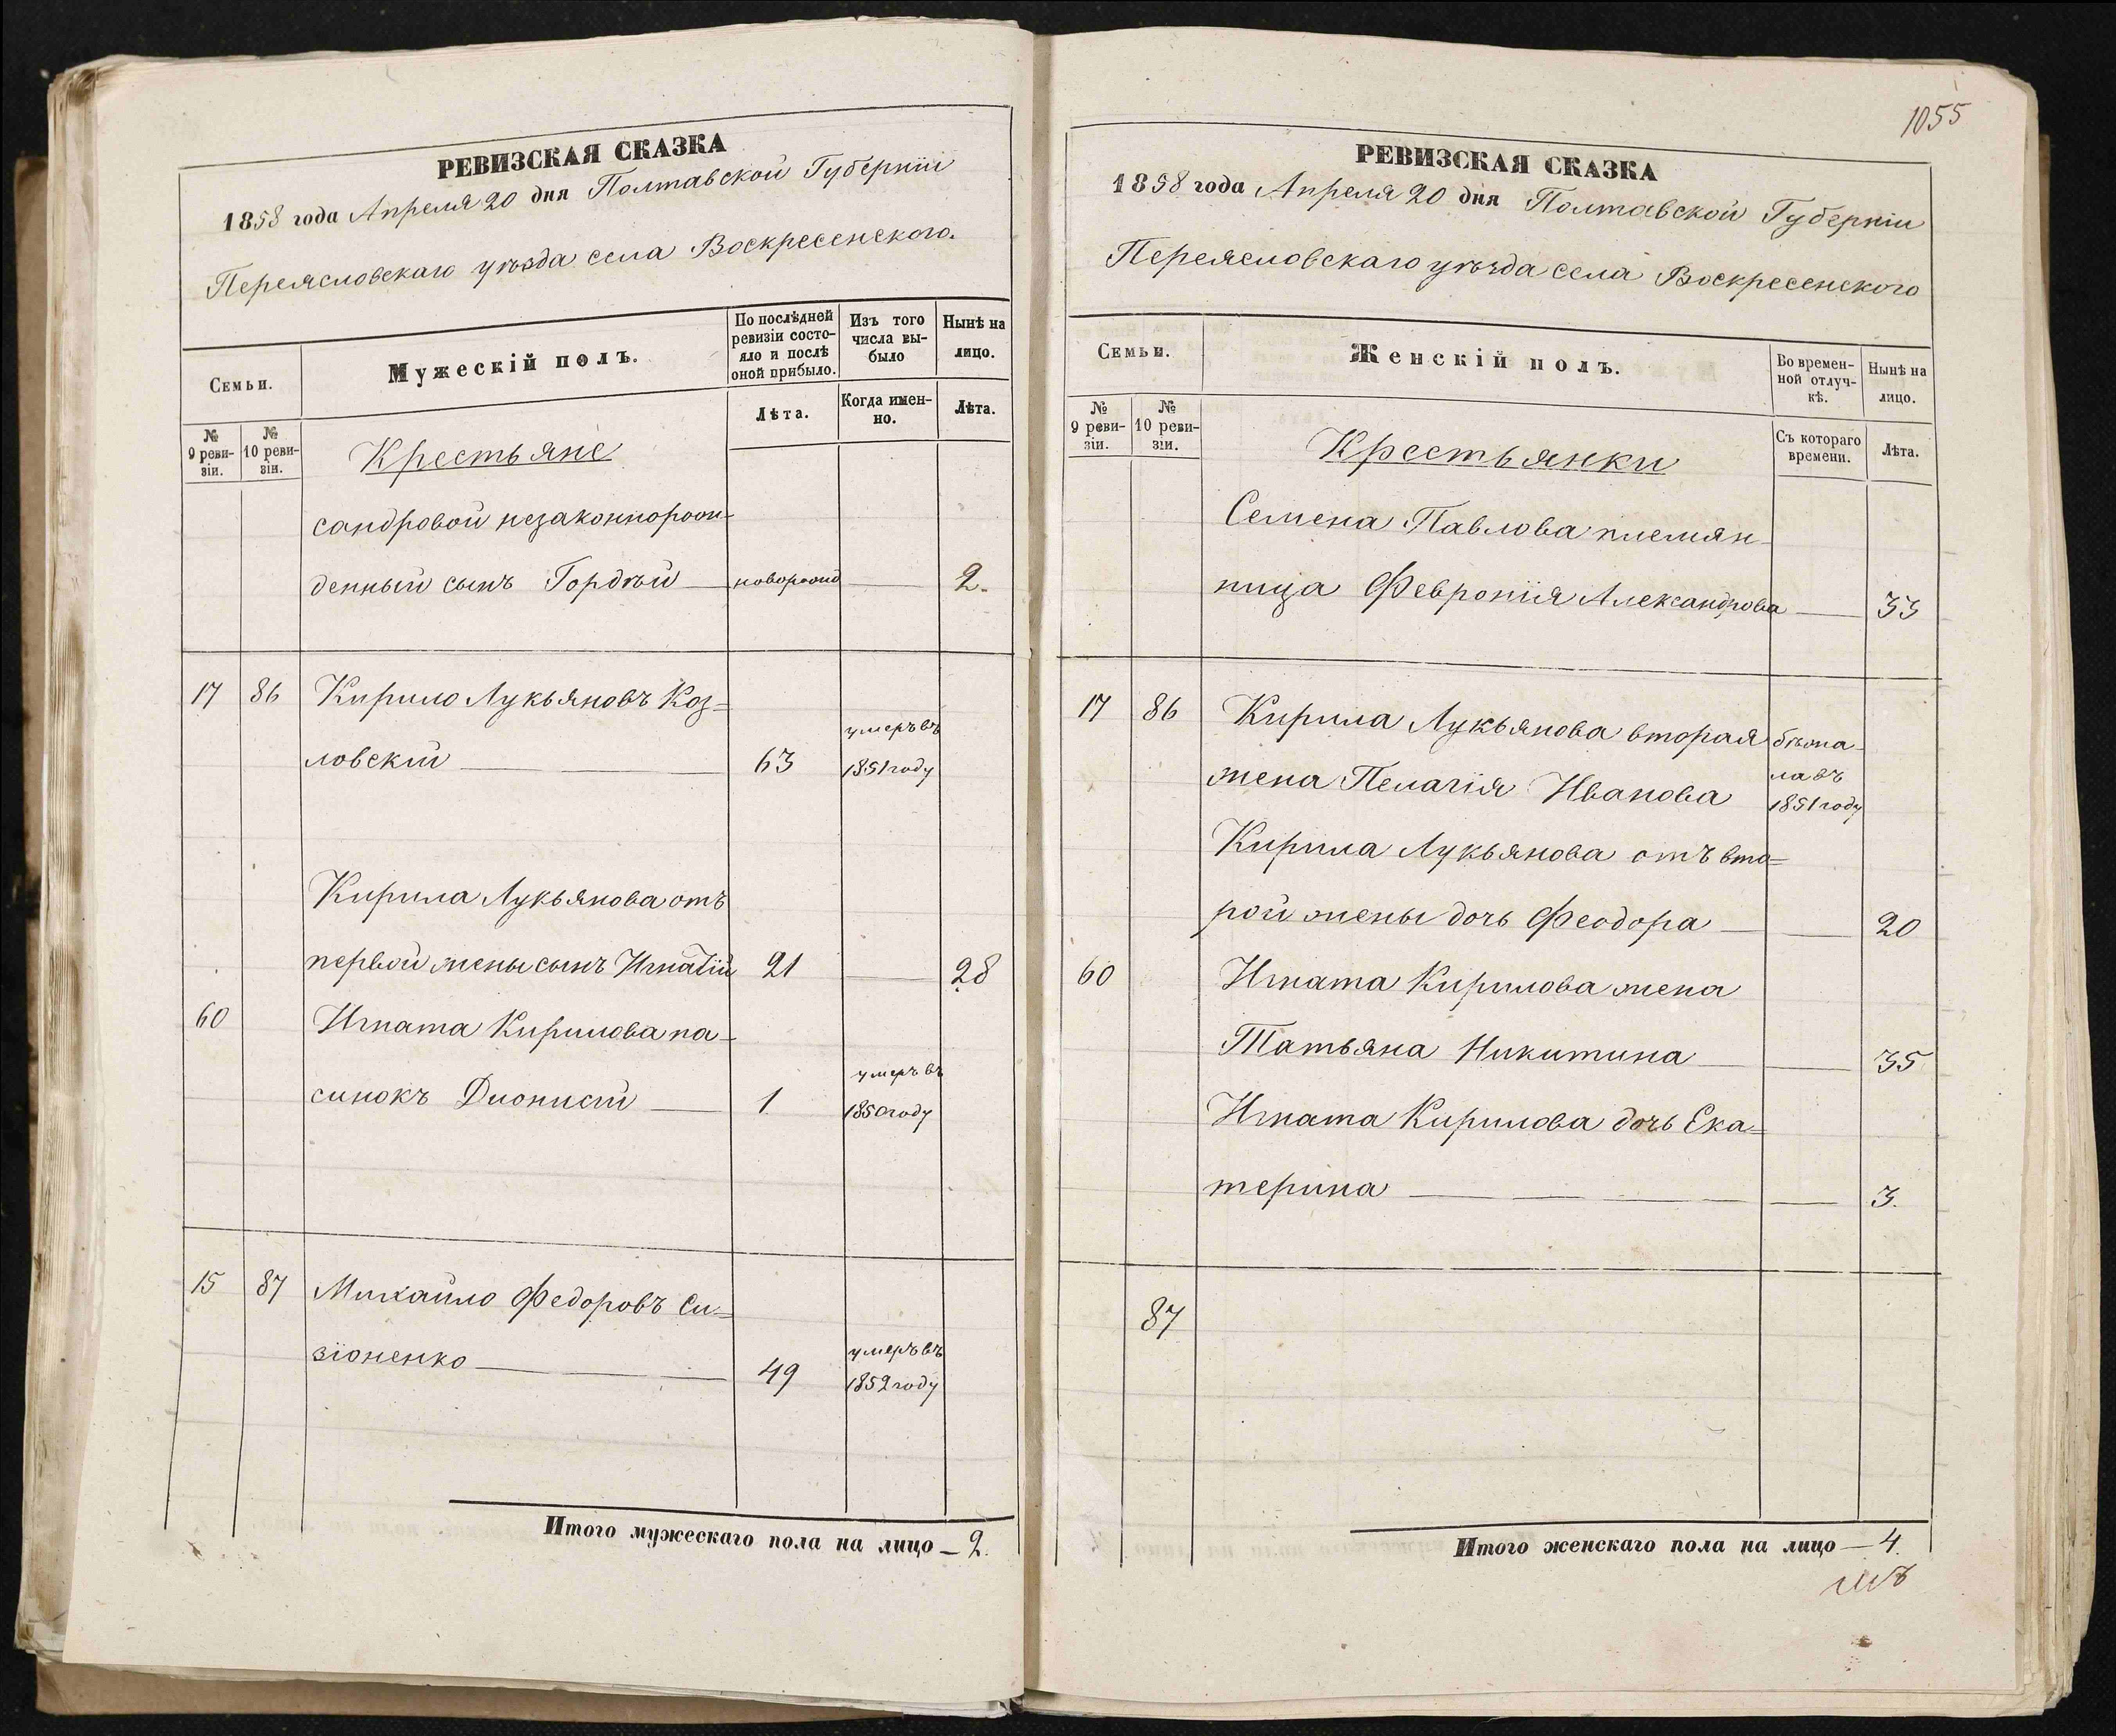 РЕВИЗСКАЯ СКАЗКА
1858 года Апреля 20 дня Полтавской Губерніи
Переясловскаго уѣзда села Воскресенского.
Семьи.
Мужескій полъ.
По послѣдней ревизіи состояло и послѣ оной прибыло.
Изъ того числа выбыло
Нынѣ на лицо.
№ 9 ревизіи.
№ 10 ревизіи.
Лѣта.
Когда именно.
Лѣта.
Крестьяне
сандровой незаконнорож-
денный сынъ Гордѣй — новорожд — 2.
17 86 Кирило Лукьяновъ Коз=
ловскій — 63 умеръ въ 1851 году
Кирила Лукьянова отъ
первой жены сынъ Игнатій 21 — 28
60 Игната Кирилова па-
синокъ Дионисій — 1 умеръ въ 1850 году
15 87 Михайло Федоровъ Си=
зіоненко — 49 умеръ въ 1852 году
Итого мужескаго пола на лицо — 2.
1055
РЕВИЗСКАЯ СКАЗКА
1858 года Апреля 20 дня Полтавской Губерніи
Переясловскаго уѣзда села Воскресенского
Семьи.
Женскій полъ.
Во временной отлучкѣ.
Нынѣ на лицо.
№ 9 ревизіи.
№ 10 ревизіи.
Съ котораго времени.
Лѣта.
Крестьянки
Семена Павлова племян-
ница Февронія Александрова — 33
17 86 Кирила Лукьянова вторая
жена Пелагія Иванова бѣжа-
ла въ
1851 году
Кирила Лукьянова отъ вто=
рой жены дочь Феодора — 20
60 Игната Кирилова жена
Татьяна Никитина — 35
Игната Кирилова дочь Ека=
терина — 3.
87
Итого женскаго пола на лицо — 4.